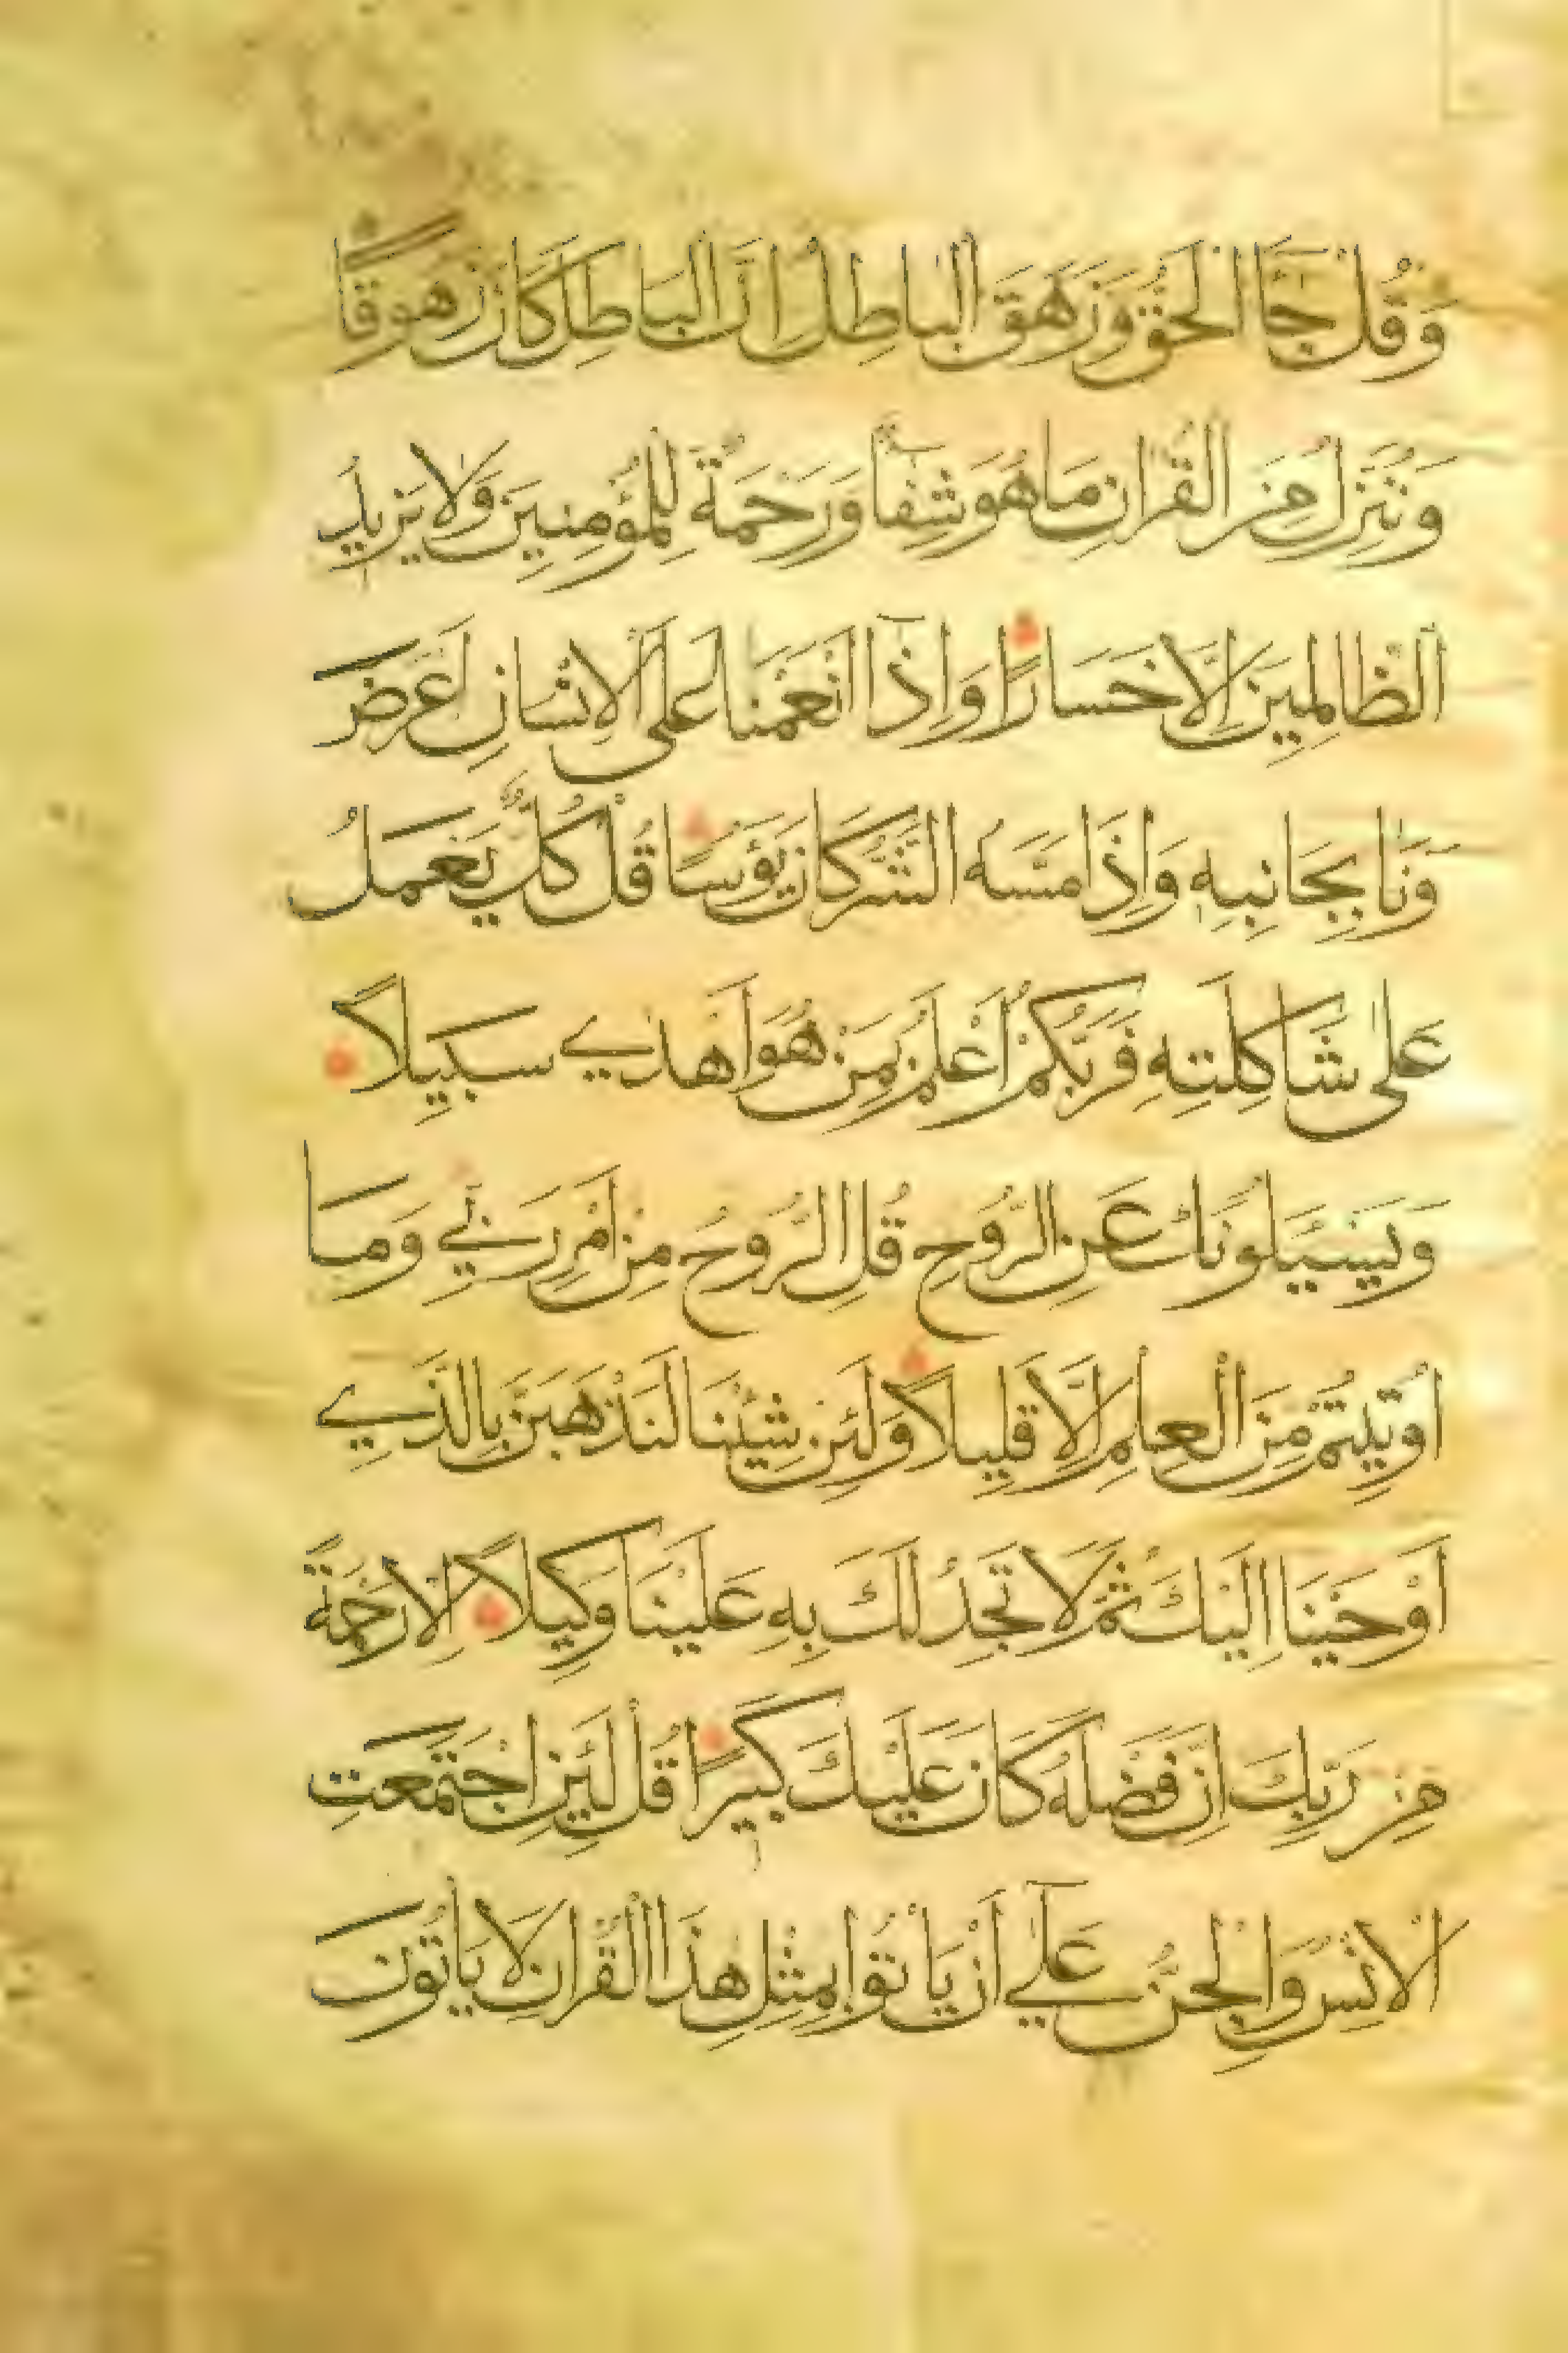 وَقُلْ جَاَ الحَقُّ وَزَهَقَ الْبَاطِلُ اِنَّ الْبَاطِلَ كَانَ زَهُوقًا
وَنُنَزِّلُ مِنَ الْقُرْانِ مَا هُوَ شِفَاۤ وَرَحْمَةٌ لِلْمُؤْمِنِينَ وَلَا يَزِيدُ
الظَّالِمِينَ اِلَّا خَسَارًا وَاِذَاۤ اَنْعَمْنَا عَلَى الْاِنْسَانِ اَعْرَضَ
وَنَاٰ بِجَانِبِهِ وَاِذَا مَسَّهُ الشَّرُّ كَانَ يَؤُسًا قُلْ كُلٌّ يَعْمَلُ
عَلٰى شَاكِلَتِهِ فَرَبُّكُمْ اَعْلَمُ بِمَنْ هُوَ اَهْدٰي سَبِيلًا
وَيَسْئَلُونَكَ عَنِ الرُّوحِ قُلِ الرُّوحُ مِنْ اَمْرِ رَبِّي وَمَا
اُوتِيتُمْ مِنَ الْعِلْمِ اِلَّا قَلِيلًا وَلَئِنْ شِئْنَا لَنَذْهَبَنَّ بِالَّذِي
اَوْحَيْنَا اِلَيْكَ ثُمَّ لَا تَجِدُ لَكَ بِهِ عَلَيْنَا وَكِيلًا اِلَّا رَحْمَةً
مِنْ رَبِّكَ اِنَّ فَضْلَهُ كَانَ عَلَيْكَ كَبِيرًا قُلْ لَئِنِ اجْتَمَعَتِ
الْاِنْسُ وَالْجِنُّ عَلٰۤي اَنْ يَاْتُوا بِمِثْلِ هٰذَا الْقُرْانِ لَا يَاْتُونَ